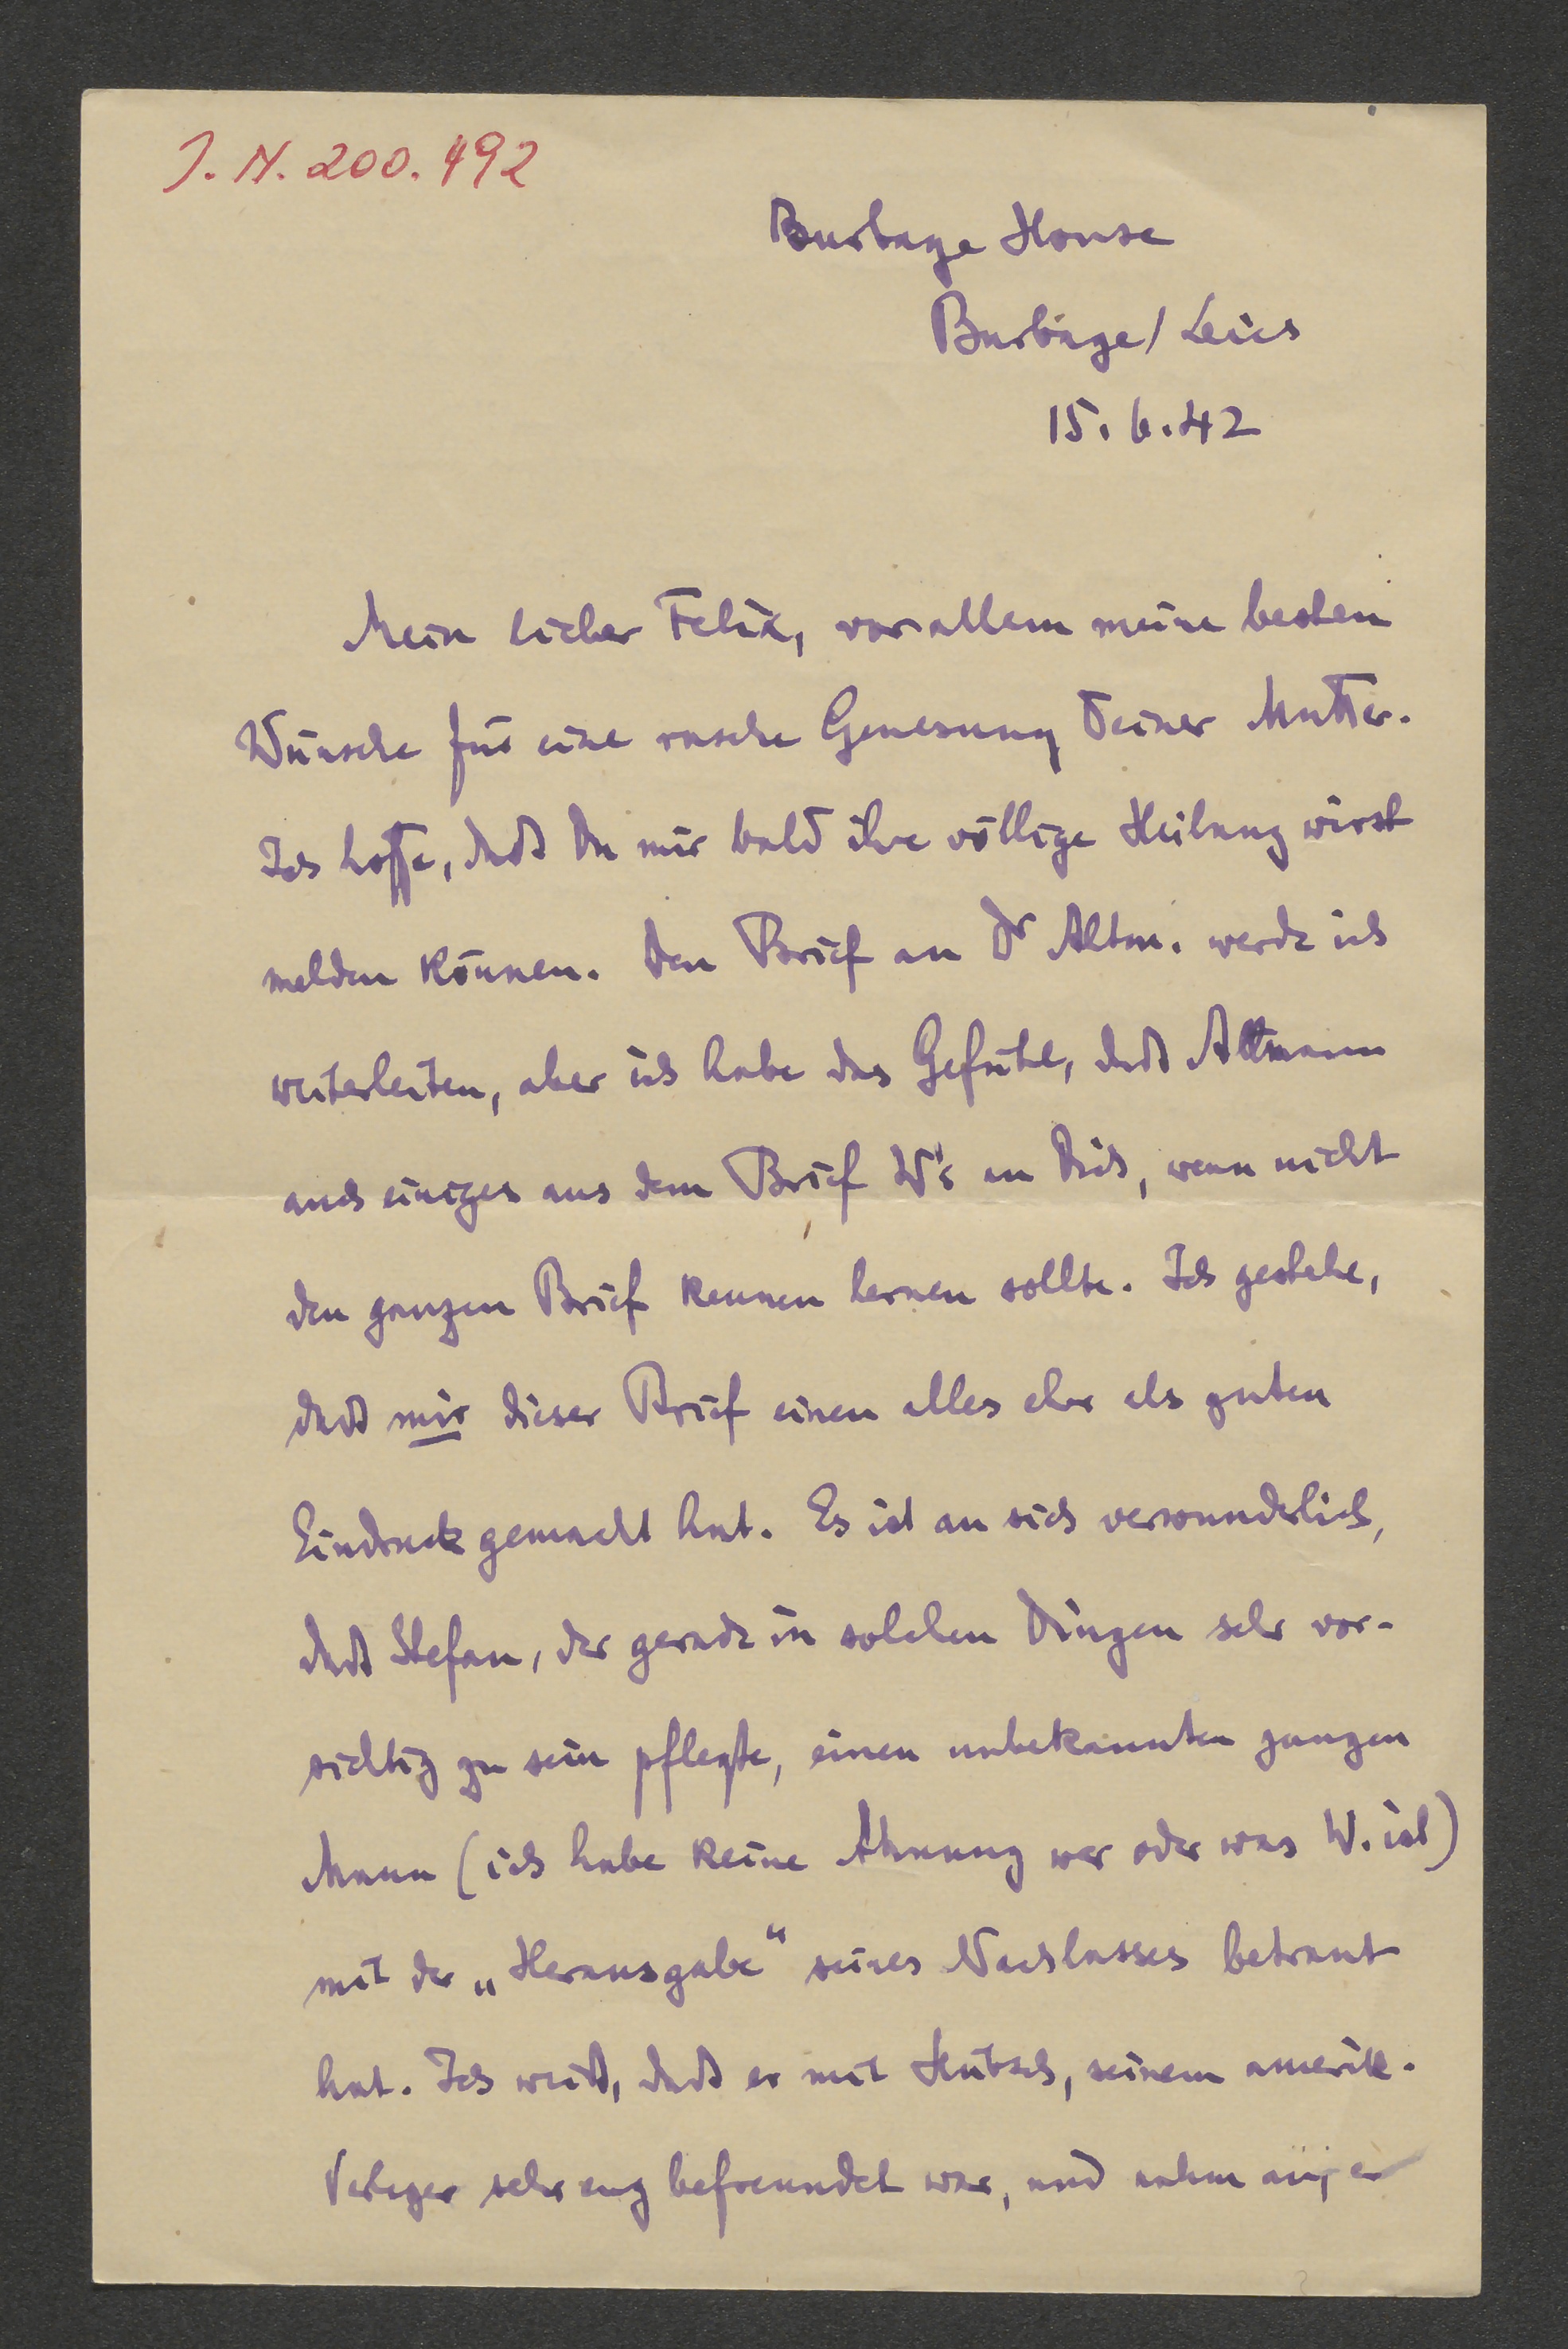 J. N. 200.492
Burbage House
Burbage / Leics
15.6.42
Mein lieber Felix, vor allem meine besten
Wünsche für eine rasche Genesung Deiner Mutter.
Ich hoffe, daß Du mir bald ihre völlige Heilung wirst
melden können. Den Brief an Dr Altm. werde ich
weiterleiten, aber ich habe das Gefühl, daß Altmann
auch einiges aus dem Brief W's an Dich, wenn nicht
den ganzen Brief kennen lernen sollte. Ich gestehe,
daß mir dieser Brief einen alles eher als guten
Eindruck gemacht hat. Es ist an sich verwunderlich,
daß Stefan, der gerade in solchen Dingen sehr vor-
sichtig zu sein pflegte, einen unbekannten jungen
Mann (ich habe keine Ahnung wer oder was W. ist)
mit der „Herausgabe“ seines Nachlasses betraut
hat. Ich weiß, daß er mit Hübsch, seinem amerik.
Verleger sehr eng befreundet war, und nahm an, er